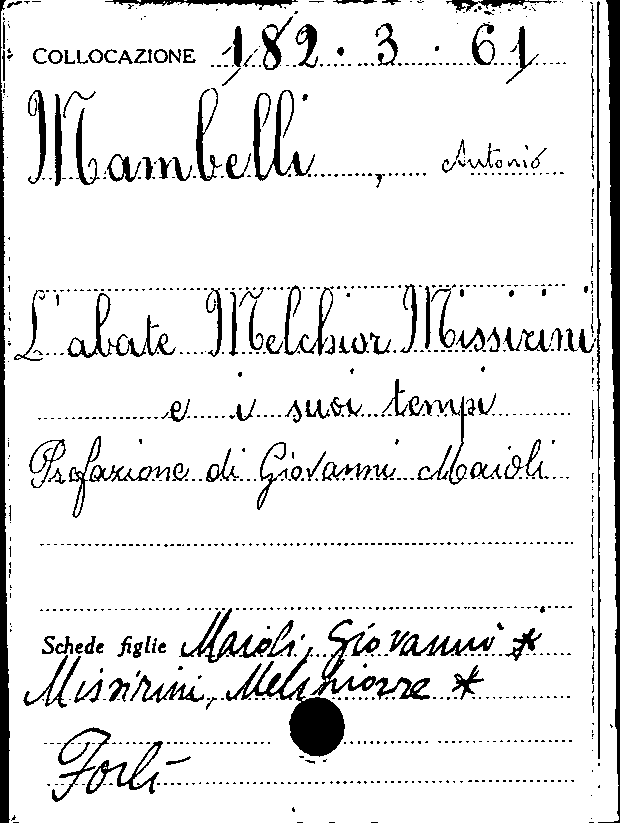 COLLOCAZIONE 182.3.61
Mambelli, Antonio
L'abate Melchior Missirini
e i suoi tempi
Prefazione di Giovanni Maioli
Schede figlie Maioli, Giovanni *
Missirini, Melchiorre *
Forlì